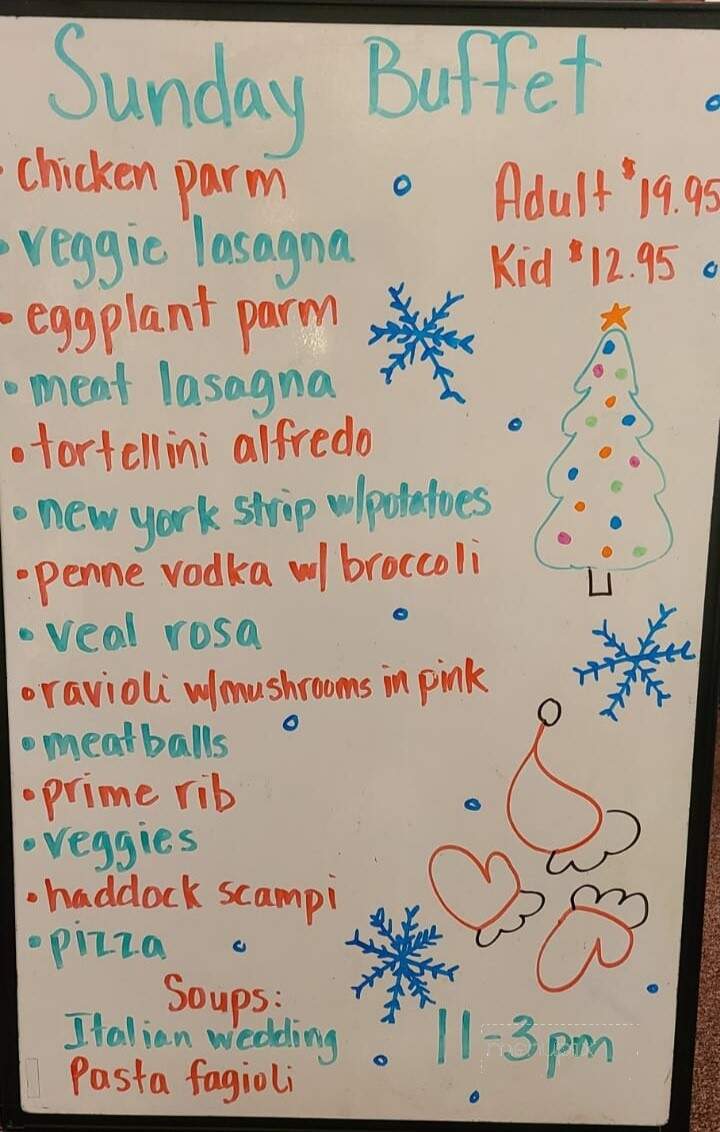 Sunday Buffet
• chicken parm
Adult $19.95
• veggie lasagna
Kid $12.95
• eggplant parm
• meat lasagna
• tortellini alfredo
• new york strip w/potatoes
• penne vodka w/ broccoli
• veal rosa
• ravioli w/mushrooms in pink
• meatballs
• prime rib
• veggies
• haddock scampi
• pizza
Soups:
Italian wedding
Pasta fagioli
11-3pm